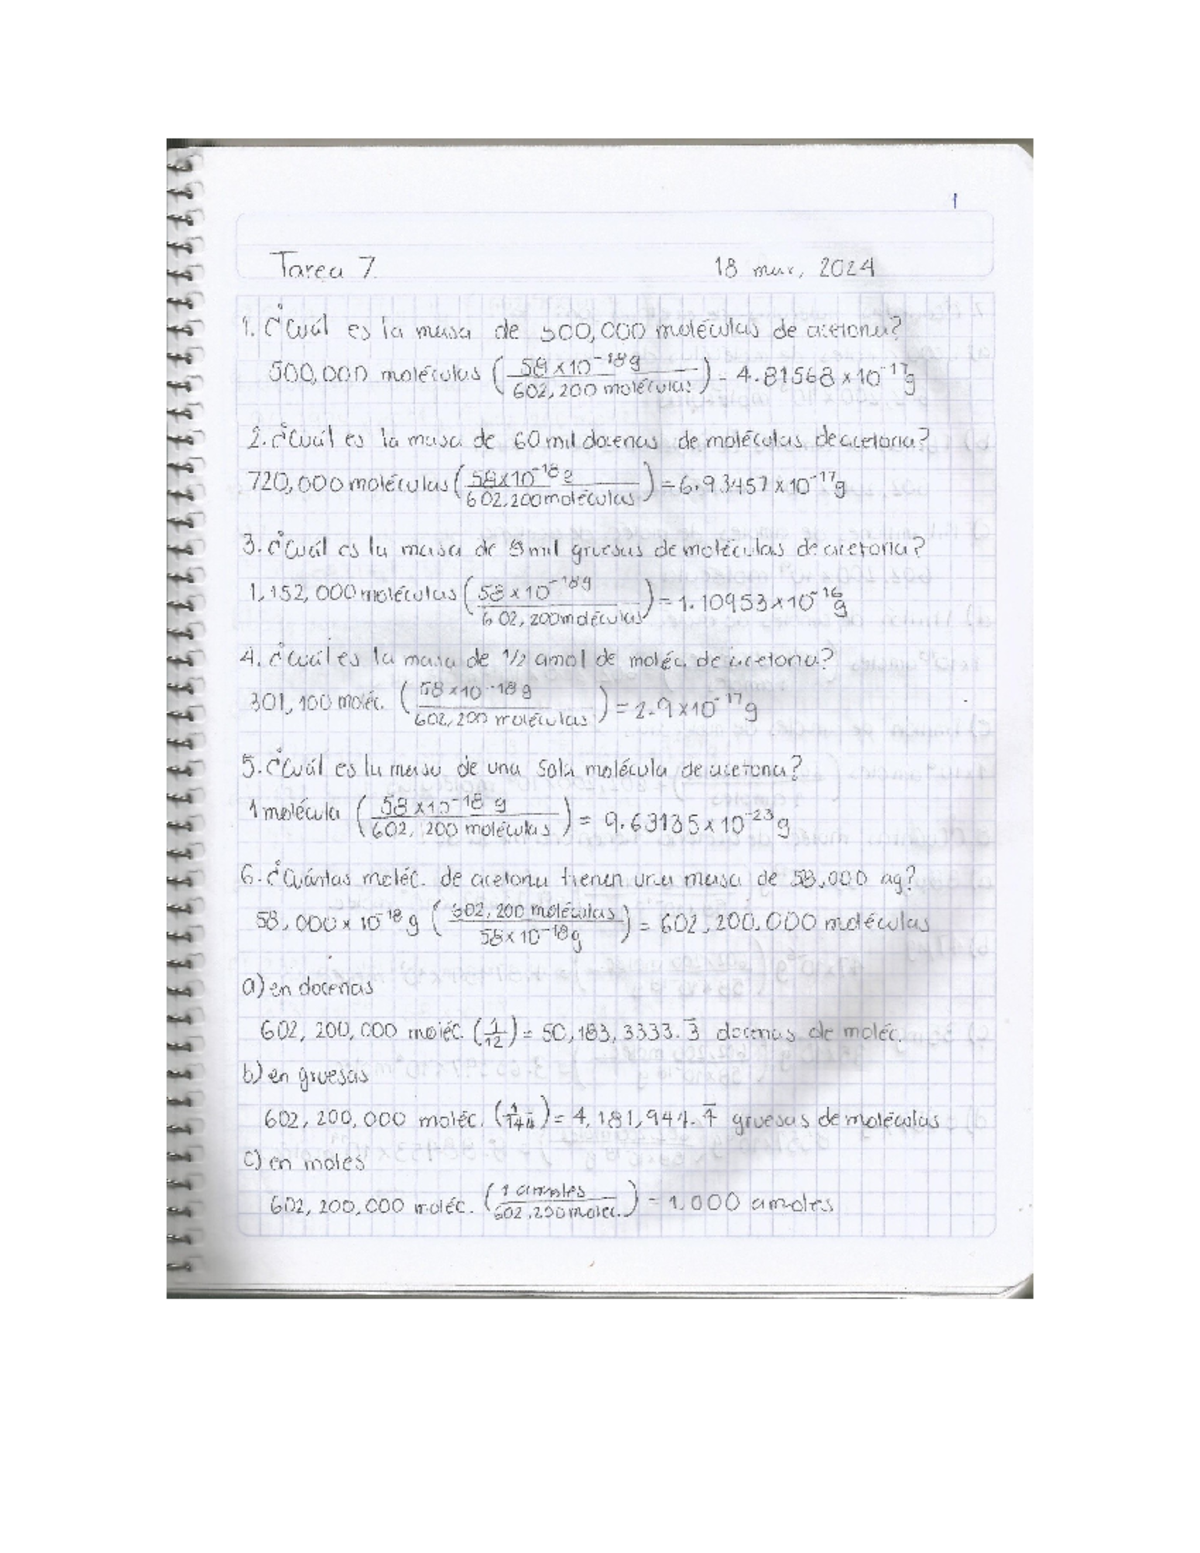 1
Tarea 7 18 mar, 2024
1. ¿Cuál es la masa de 500,000 moléculas de acetona?
500,000 moléculas (58 x 10^-18 g / 602,200 moléculas) = 4.81568 x 10^-17 g
2. ¿Cuál es la masa de 60 mil docenas de moléculas de acetona?
720,000 moléculas (58 x 10^-18 g / 602,200 moléculas) = 6.93457 x 10^-17 g
3. ¿Cuál es la masa de 8 mil gruesas de moléculas de acetona?
1,152,000 moléculas (58 x 10^-18 g / 602,200 moléculas) = 1.10953 x 10^-16 g
4. ¿Cuál es la masa de 1/2 amol de moléc. de acetona?
301,100 moléc. (58 x 10^-18 g / 602,200 moléculas) = 2.9 x 10^-17 g
5. ¿Cuál es la masa de una sola molécula de acetona?
1 molécula (58 x 10^-18 g / 602,200 moléculas) = 9.63135 x 10^-23 g
6. ¿Cuántas moléc. de acetona tienen una masa de 58,000 ag?
58,000 x 10^-18 g (602,200 moléculas / 58 x 10^-18 g) = 602,200,000 moléculas
a) en docenas
602,200,000 moléc. (1/12) = 50,183,3333.3̅ docenas de moléc.
b) en gruesas
602,200,000 moléc. (1/144) = 4,181,944.4̅ gruesas de moléculas
c) en moles
602,200,000 moléc. (1 amoles / 602,200 moléc.) = 1,000 amoles